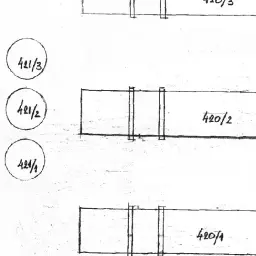 420/3
421/3
421/2
420/2
421/1
420/1